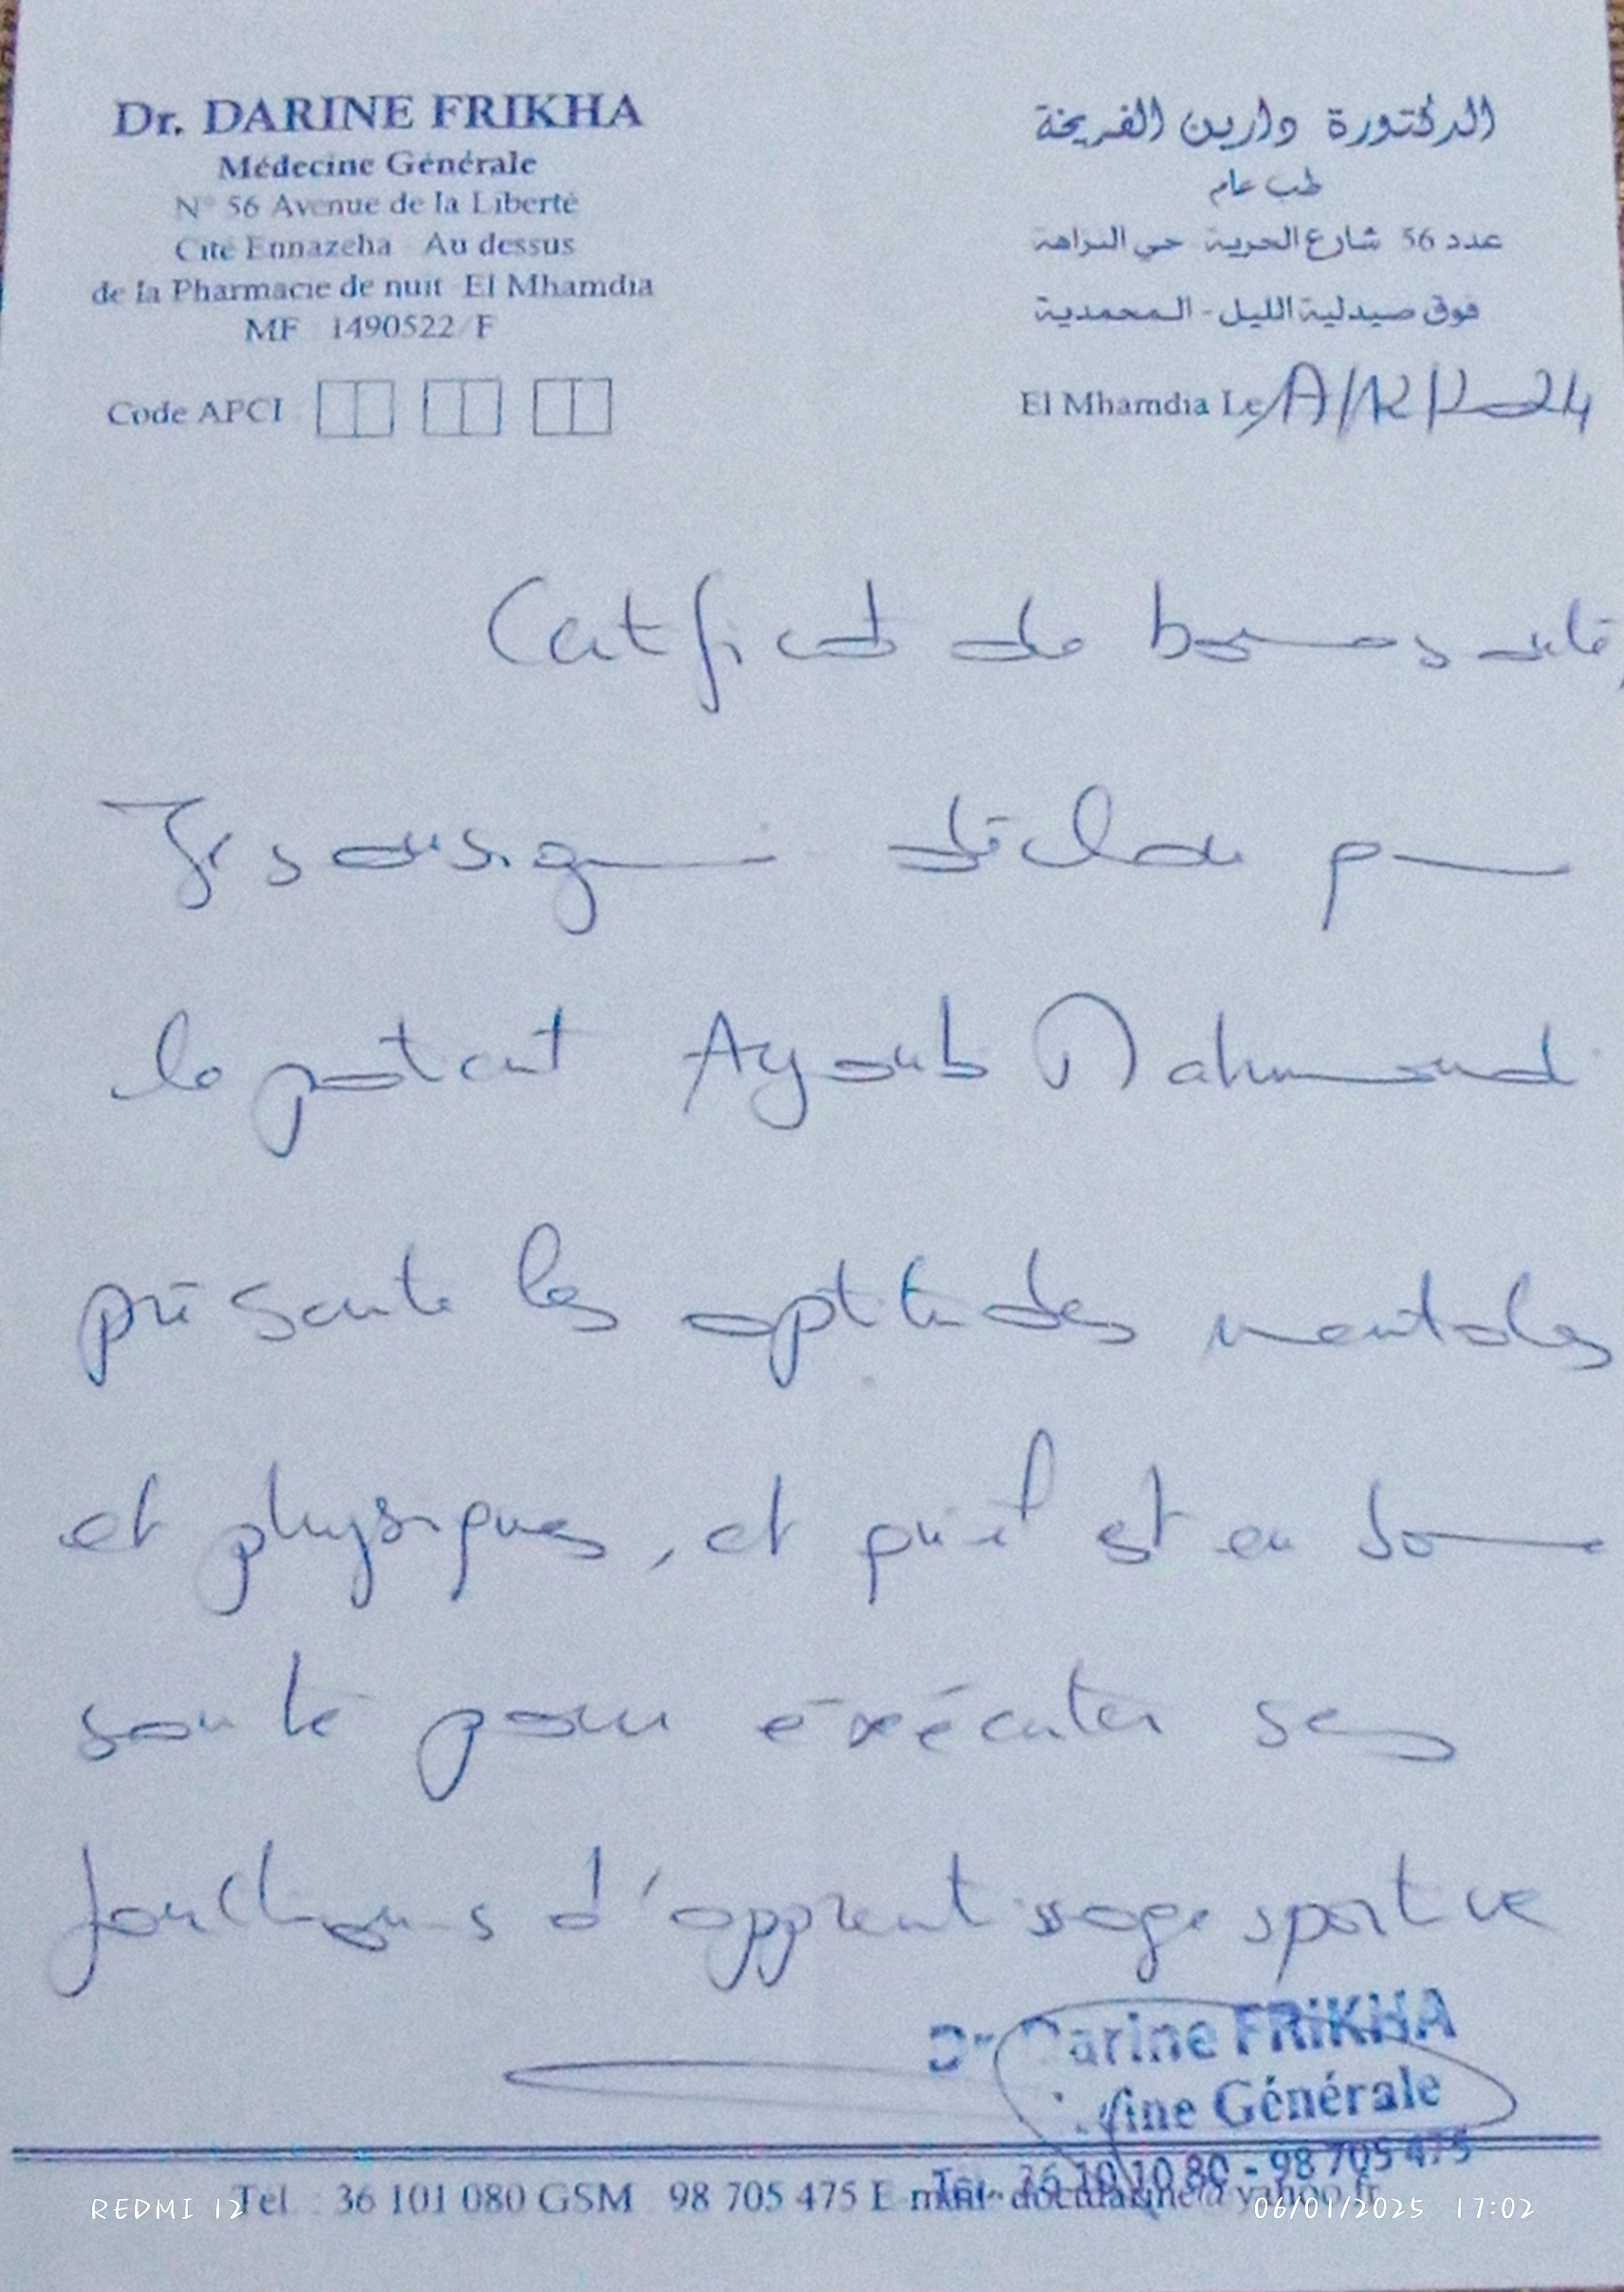 Dr. DARINE FRIKHA
Médecine Générale
N° 56 Avenue de la Liberté
Cité Ennazeha Au dessus
de la Pharmacie de nuit El Mhamdia
MF 1490522/F
Code APCI
الدكتورة دارين الفريخة
طب عام
عدد 56 شارع الحرية حي النزاهة
فوق صيدلية الليل - المحمدية
El Mhamdia Le
Certificat de bonne santé
Je soussigné déclare que
le patient Ayoub Mahmoud
présente les aptitudes mentales
et physiques, et qu'il est en bonne
santé pour éxécuter ses
fonctions d'apprentissage sportive
Dr Darine FRIKHA
Générale
Tel 36 10 10 80 - 98 705 475
Tel : 36 101 080 GSM 98 705 475 E-mail
REDMI 12
06/01/2025 17:02